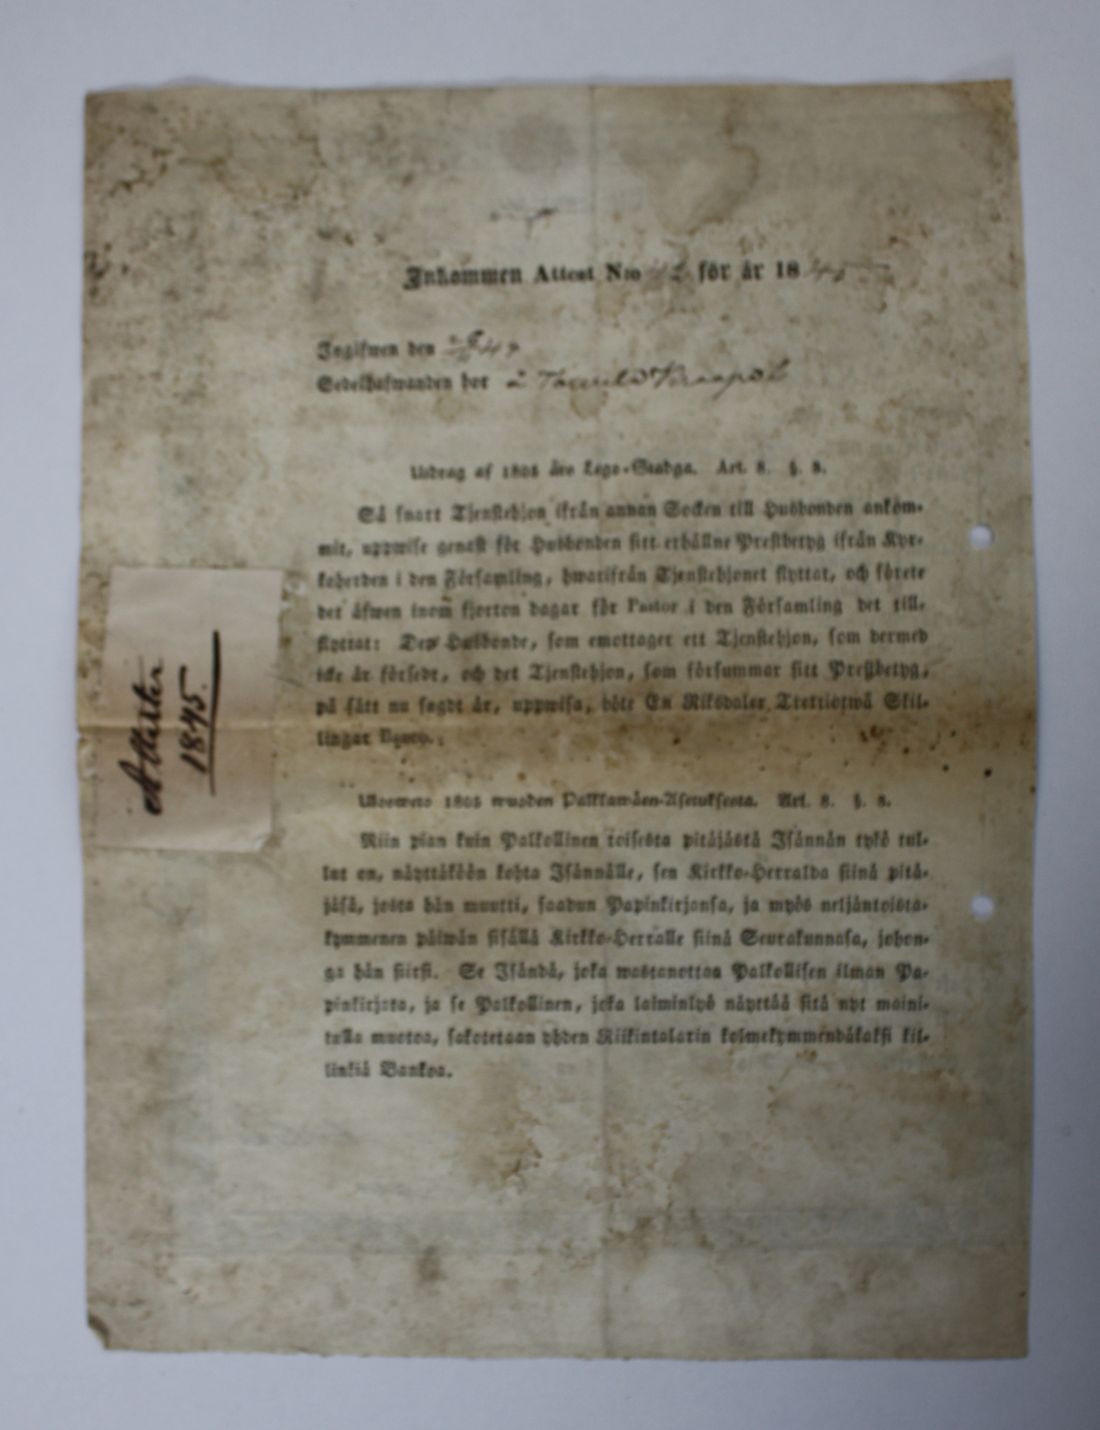 Inkommen Attest Nro 12 för år 1845
Ingifwen den
Sedelhafwanden bor å
Utdrag af 1805 års Lego-Stadga. Art. 8. §. 8.
Så snart Tjenstehjon ifrån annan Socken till Husbonden ankom-
mit, uppwise genast för Husbonden sitt erhållne Prestbetyg ifrån Kyr-
koherden i den Församling, hwarifrån Tjenstehjonet flyttat, och förete
det äfwen inom fjorton dagar för Pastor i den Församling det till-
flyttat: Den Husbonde, som emottager ett Tjenstehjon, som dermed
icke är försedt, och det Tjenstehjon, som försummar sitt Prestbetyg,
på sätt nu sagdt är, uppwisa, böte En Riksdaler Trettiotwå Skil-
lingar Banco.
Attester
1845.
Ulosweto 1805 wuoden Palkkawäen-Asetuksesta. Art. 8. §. 8.
Niin pian kuin Palkollinen toisesta pitäjästä Isännän tykö tul-
lut on, näyttäköön kohta Isännälle, sen Kirkko-Herralda siinä pitä-
jäsä, josta hän muutti, saadun Papinkirjansa, ja myös neljäntoista-
kymmenen päiwän sisällä Kirkko-Herralle siinä Seurakunnasa, johon-
ga hän siirsi. Se Isändä, joka wastanottaa Palkollisen ilman Pa-
pinkirjata, ja se Palkollinen, joka laiminlyö näyttää sitä nyt maini-
tulla muotoa, sakotetaan yhden Riikintalarin kolmekymmendäkaksi kil-
linkiä Bankoa.